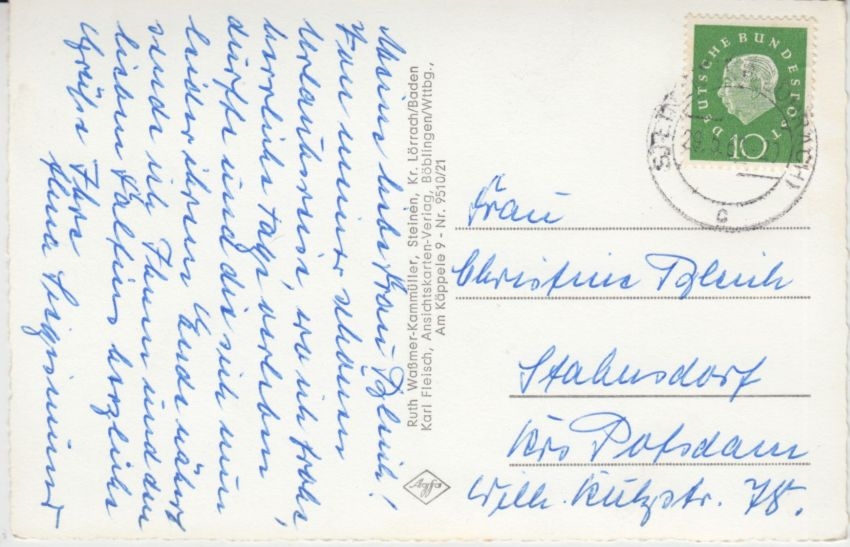 Meine liebe Frau Pzlnik!
Von meiner schönen
Urlaubsreise wo ich frohe,
herrliche Tage verleben
durfte und die sich nun
leider ihrem Ende nähert
sende ich Ihnen und den
lieben herzliche
Grüße Ihre
Siegismund
Ruth Waßmer-Kammüller, Steinen, Kr. Lörrach/Baden
Karl Fleisch, Ansichtskarten-Verlag, Böblingen/Wttbg.,
Am Käppele 9 - Nr. 9510/21
Agfa
DEUTSCHE BUNDESPOST
10
c
Frau
Christine
Stahnsdorf
Krs Potsdam
Wilh. Külzstr. 78.